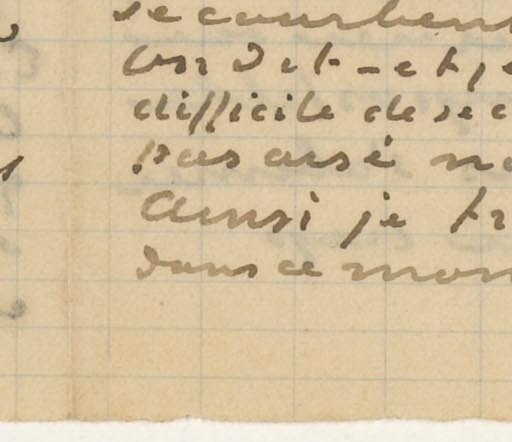 se courbent
on dit - et je
difficile de se c
pas aisé no
Ainsi je tr
dans ce mon